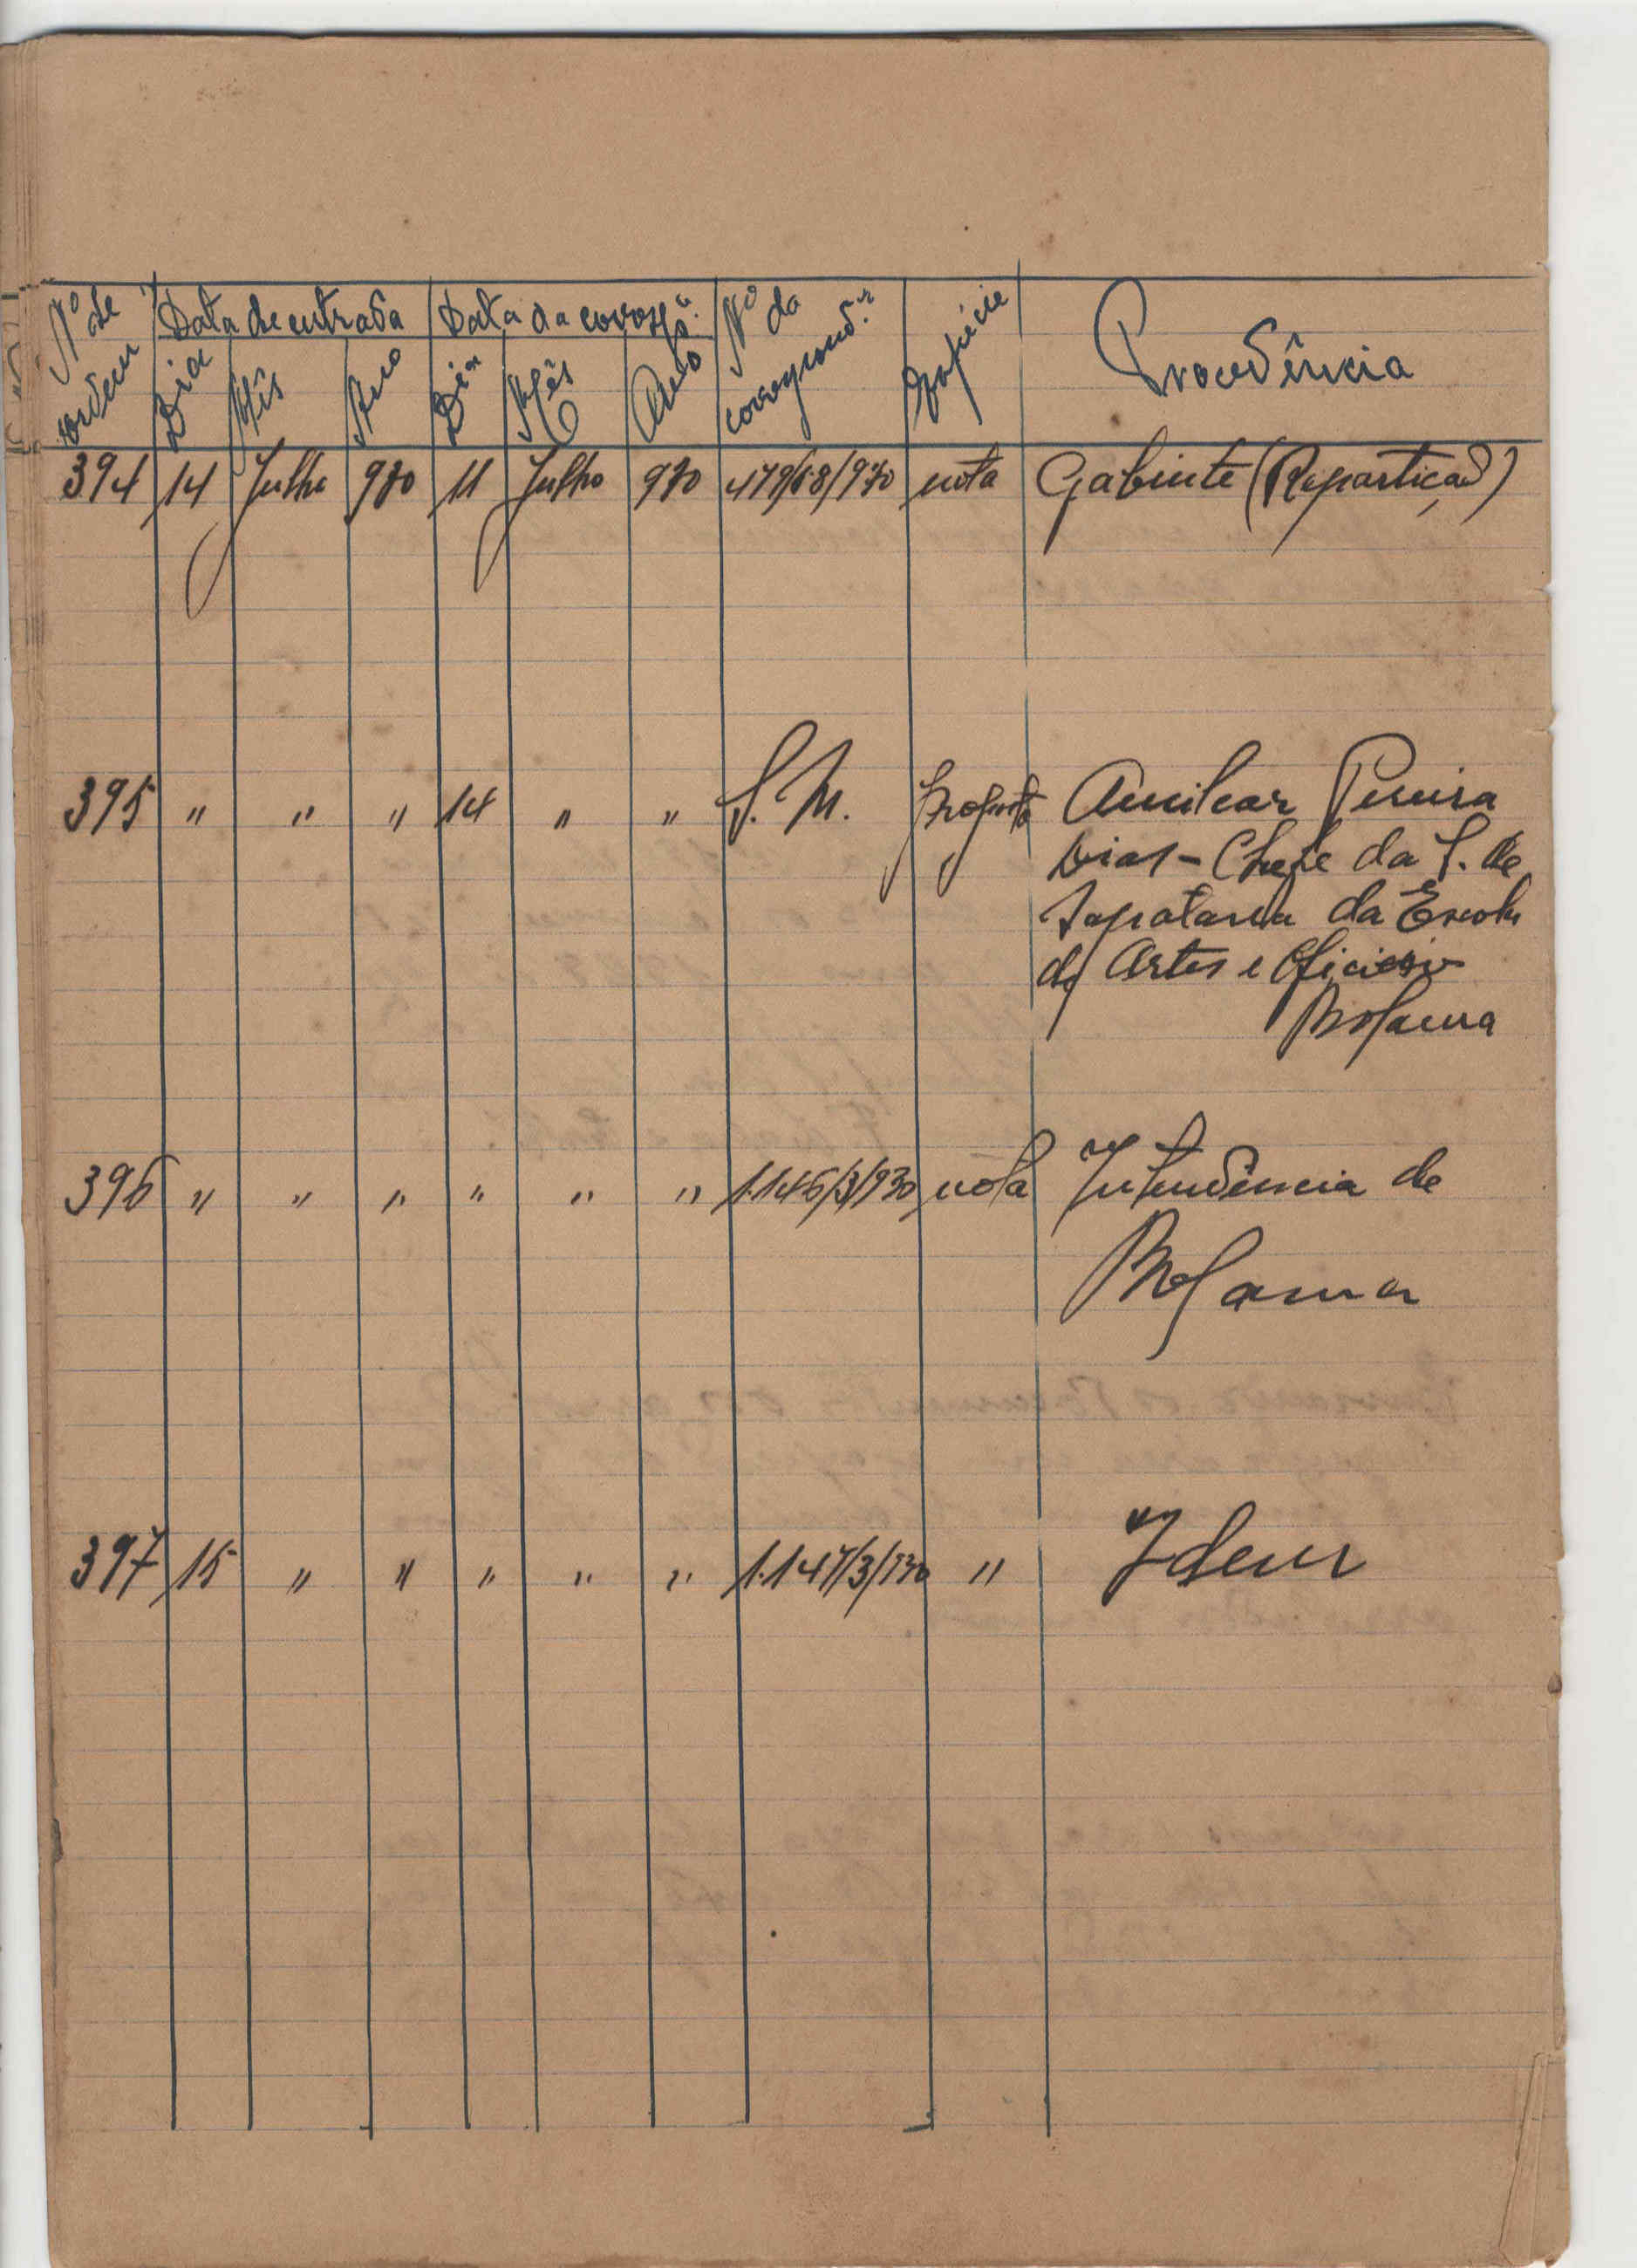 Nº de ordem | Data de entrada | Data da corresp.ª | Nº da correspond.ª | Espécie | Procedência
Dia | Mês | Ano | Dia | Mês | Ano
394 | 14 | Julho | 930 | 11 | Julho | 930 | 479/68/930 | nota | Gabinte (Repartição)
395 | " | " | " | 14 | " | " | S. N. | Proposta | Amilcar Pereira
Dias - Chefe da S. de
Sapataria da Escola
de Artes e Oficios
Bolama
396 | " | " | " | " | " | " | 1.146/3/930 | nota | Intendência de
Bolama
397 | 15 | " | " | " | " | " | 1.147/3/930 | " | Idem